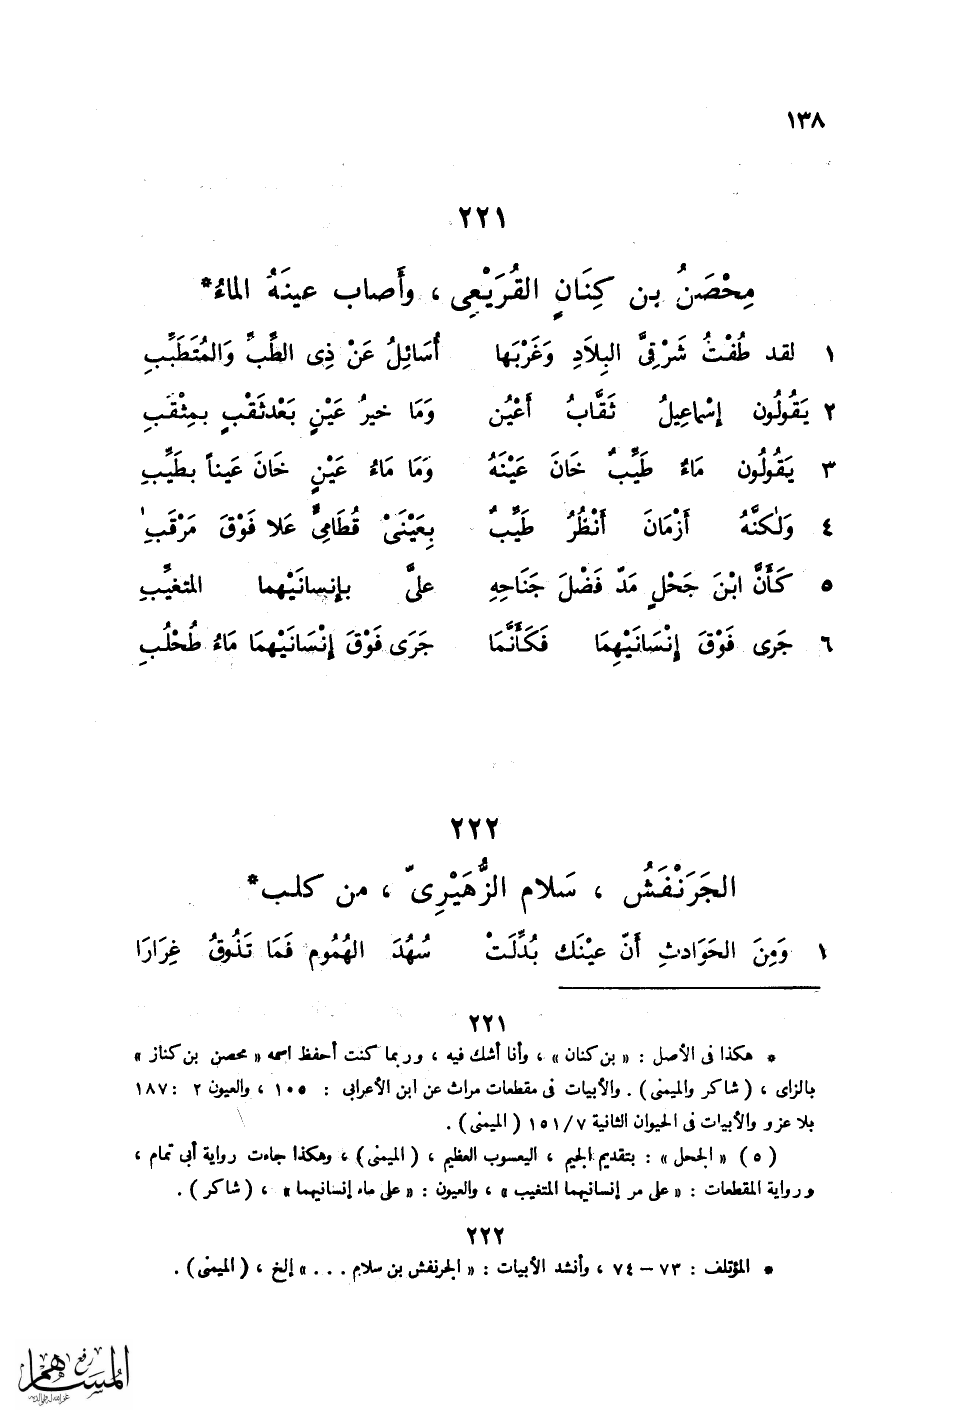 ١٣٨
٢٢١
مِحْصَنُ بن كِنَانٍ القُرَيْعِى ، وأَصاب عينَهُ الماءُ*
١ لقد طُفْتُ شَرْقِىَّ البِلَادِ وَغَرْبَها أُسَائِلُ عَنْ ذِى الطِّبِّ وَالمُتَطَبِّبِ
٢ يَقُولُون إِسْماعِيلُ ثَقَّابُ أَعْيُن وَمَا خيرُ عَيْنٍ بَعْدثَقْبٍ بمِثْقَبِ
٣ يَقُولُون مَاءٌ طَيِّبٌ خَانَ عَيْنَهُ وَمَا مَاءُ عَيْنٍ خَانَ عَيناً بطَيِّبِ
٤ وَلٰكنَّهُ أَزْمَانَ أَنْظُرُ طَيِّبٌ بِعَيْنَىْ قُطَامِىٍّ عَلا فَوْقَ مَرْقَبِ
٥ كَأَنَّ ابْنَ جَحْلٍ مَدّ فَضْلَ جَنَاحِهِ علىَّ بإِنسانَيْهما المتغيَّبِ
٦ جَرَى فَوْقَ إِنْسَانَيْهِمَا فَكَأَنَّمَا جَرَى فَوْقَ إِنْسَانَيْهِمَا مَاءُ طُحْلُبِ
٢٢٢
الجَرَنْفَشُ ، سَلام الزُّهَيْرِىّ ، من كلب*
١ وَمِنَ الحَوَادثِ أَنّ عينَك بُدِّلَتْ سُهُدَ الهُمُومِ فَمَا تَذُوقُ غِرَارَا
٢٢١
* هكذا فى الأصل : « بن كنان » ، وأنا أشك فيه ، وربما كنت أحفظ اسمه « محصن بن كناز »
بالزاى ، ( شاكر والميمنى ) . والأبيات فى مقطعات مراث عن ابن الأعرابى : ١٠٥ ، والعيون ٢ : ١٨٧
بلا عزو والأبيات فى الحيوان الثانية ٧/١٥١ ( الميمنى ) .
( ٥ ) « الجحل » : بتقديم الجيم ، اليعسوب العظيم ، ( الميمنى ) ، وهكذا جاءت رواية أبى تمام ،
ورواية المقطعات : « على مر إنسانيهما المتغيب » ، والعيون : « على ماء إنسانيهما » ، ( شاكر ) .
٢٢٢
* المؤتلف : ٧٣ – ٧٤ ، وأنشد الأبيات : « الجرنفش بن سلام . . . » إلخ ، ( الميمنى ) .